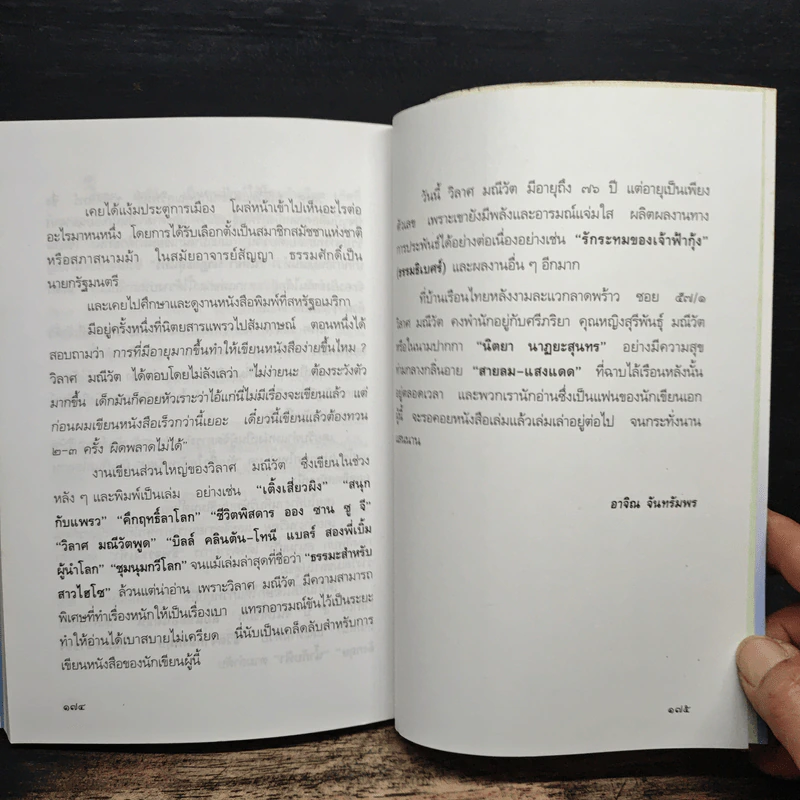 เคยได้แง้มประตูการเมือง โผล่หน้าเข้าไปเห็นอะไรต่อ
อะไรมาหนหนึ่ง โดยการได้รับเลือกตั้งเป็นสมาชิกสมัชชาแห่งชาติ
หรือสภาสนามม้า ในสมัยอาจารย์สัญญา ธรรมศักดิ์เป็น
นายกรัฐมนตรี
และเคยไปศึกษาและดูงานหนังสือพิมพ์ที่สหรัฐอเมริกา
มีอยู่ครั้งหนึ่งที่นิตยสารแพรวไปสัมภาษณ์ ตอนหนึ่งได้
สอบถามว่า การที่มีอายุมากขึ้นทำให้เขียนหนังสือง่ายขึ้นไหม ?
วิลาศ มณีวัต ได้ตอบโดยไม่ลังเลว่า "ไม่ง่ายนะ ต้องระวังตัว
มากขึ้น เด็กมันก็คอยหัวเราะว่าไอ้แก่นี่ไม่มีเรื่องจะเขียนแล้ว แต่
ก่อนผมเขียนหนังสือเร็วกว่านี้เยอะ เดี๋ยวนี้เขียนแล้วต้องทวน
๒-๓ ครั้ง ผิดพลาดไม่ได้"
งานเขียนส่วนใหญ่ของวิลาศ มณีวัต ซึ่งเขียนในช่วง
หลัง ๆ และพิมพ์เป็นเล่ม อย่างเช่น "เติ้งเสี่ยวผิง" "สนุก
กับแพรว" "คึกฤทธิ์ลาโลก" "ชีวิตพิสดาร ออง ซาน ซู จี"
"วิลาศ มณีวัตพูด" "บิลล์ คลินตัน-โทนี แบลร์ สองพี่เบิ้ม
ผู้นำโลก" "ชุมนุมกวีโลก" จนแม้เล่มล่าสุดที่ชื่อว่า "ธรรมะสำหรับ
สาวไฮโซ" ล้วนแต่น่าอ่าน เพราะวิลาศ มณีวัต มีความสามารถ
พิเศษที่ทำเรื่องหนักให้เป็นเรื่องเบา แทรกอารมณ์ขันไว้เป็นระยะ
ทำให้อ่านได้เบาสบายไม่เครียด นี่นับเป็นเคล็ดลับสำหรับการ
เขียนหนังสือของนักเขียนผู้นี้
๑๗๔
วันนี้ วิลาศ มณีวัต มีอายุถึง ๗๖ ปี แต่อายุเป็นเพียง
ตัวเลข เพราะเขายังมีพลังและอารมณ์แจ่มใส ผลิตผลงานทาง
การประพันธ์ได้อย่างต่อเนื่องอย่างเช่น "รักระทมของเจ้าฟ้ากุ้ง"
(ธรรมธิเบศร์) และผลงานอื่น ๆ อีกมาก
ที่บ้านเรือนไทยหลังงามละแวกลาดพร้าว ซอย ๕๗/๑
วิลาศ มณีวัต คงพำนักอยู่กับศรีภริยา คุณหญิงสุรีพันธุ์ มณีวัต
หรือในนามปากกา "นิตยา นาฏยะสุนทร" อย่างมีความสุข
ท่ามกลางกลิ่นอาย "สายลม-แสงแดด" ที่ฉาบไล้เรือนหลังนั้น
อยู่ตลอดเวลา และพวกเรานักอ่านซึ่งเป็นแฟนของนักเขียนเอก
ผู้นี้ จะรอคอยหนังสือเล่มแล้วเล่มเล่าอยู่ต่อไป จนกระทั่งนาน
แสนนาน
อาจิณ จันทรัมพร
๑๗๕